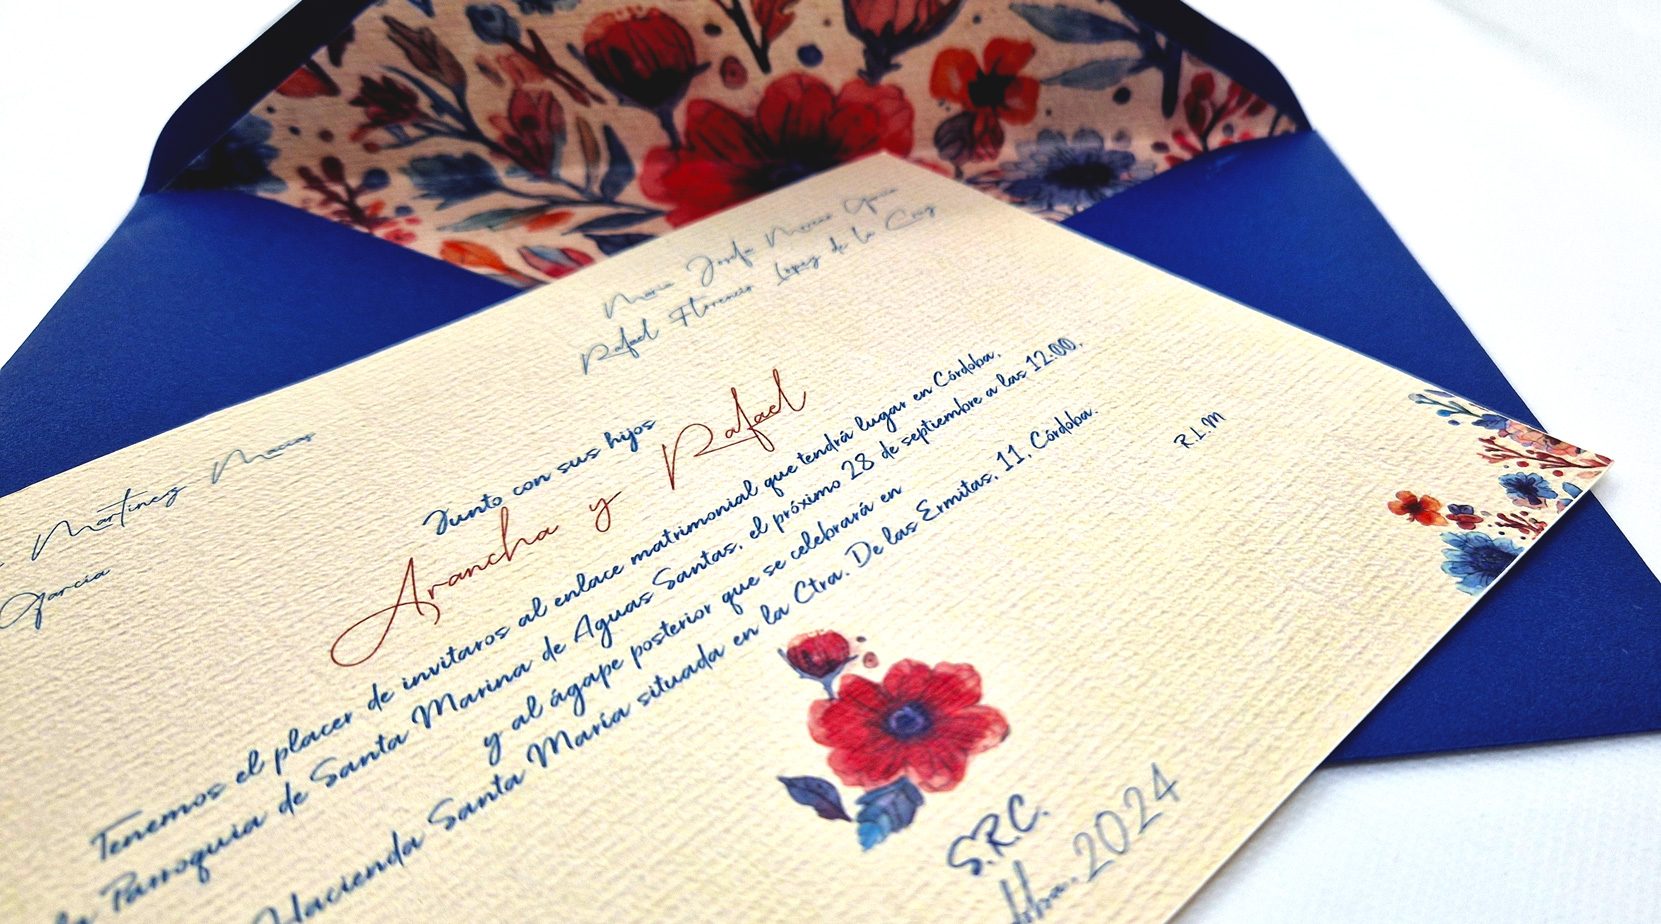 Martínez Macías
García
María Josefa Moreno García
Rafael Florencio López de la Cruz
Junto con sus hijos
Arancha y Rafael
Tenemos el placer de invitaros al enlace matrimonial que tendrá lugar en Córdoba,
la Parroquia de Santa Marina de Aguas Santas, el próximo 28 de septiembre a las 12:00,
y al ágape posterior que se celebrará en
Hacienda Santa María situada en la Ctra. De las Ermitas, 11, Córdoba.
R.L.M
S.R.C.
2024